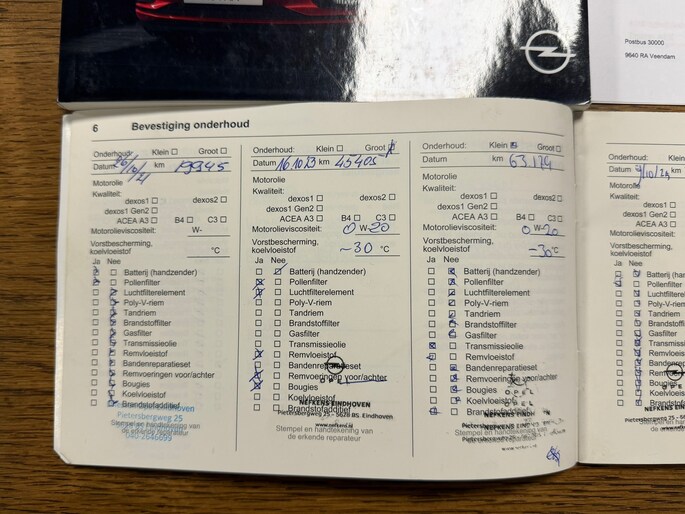 Postbus 30000
9640 RA Veendam
6 Bevestiging onderhoud
Onderhoud: Klein Groot
Datum 26/10/21 km 19945
Motorolie
Kwaliteit:
dexos1 dexos2
dexos1 Gen2
ACEA A3 B4 C3
Motorolieviscositeit: W-
Vorstbescherming,
koelvloeistof °C
Ja Nee
Batterij (handzender)
Pollenfilter
Luchtfilterelement
Poly-V-riem
Tandriem
Brandstoffilter
Gasfilter
Transmissieolie
Remvloeistof
Bandenreparatieset
Remvoeringen voor/achter
Bougies
Koelvloeistof
Brandstofadditief
Pietersbergweg 25
Stempel en handtekening van
de erkende reparateur
040 2646699
Onderhoud: Klein Groot
Datum 161013 km 45405
Motorolie
Kwaliteit:
dexos1 dexos2
dexos1 Gen2
ACEA A3 B4 C3
Motorolieviscositeit: 0 W-20
Vorstbescherming,
koelvloeistof -30 °C
Ja Nee
Batterij (handzender)
Pollenfilter
Luchtfilterelement
Poly-V-riem
Tandriem
Brandstoffilter
Gasfilter
Transmissieolie
Remvloeistof
Bandenreparatieset
Remvoeringen voor/achter
OPEL
Bougies
Koelvloeistof
Brandstofadditief
NEFKENS EINDHOVEN
Pietersbergweg 25 - 5628 BS. Eindhoven
www.nefkens.nl
Stempel en handtekening van
de erkende reparateur
Onderhoud: Klein Groot
Datum km 63.179
Motorolie
Kwaliteit:
dexos1 dexos2
dexos1 Gen2
ACEA A3 B4 C3
Motorolieviscositeit: 0 W-20
Vorstbescherming,
koelvloeistof -30 °C
Ja Nee
Batterij (handzender)
Pollenfilter
Luchtfilterelement
Poly-V-riem
Tandriem
Brandstoffilter
Gasfilter
Transmissieolie
Remvloeistof
Bandenreparatieset
Remvoeringen voor/achter
Bougies
OPEL
Koelvloeistof
Brandstofadditief
NEFKENS EINDH
Stempel en handtekening van
de erkende reparateur
Onderhoud:
Datum /10/24 km
Motorolie
Kwaliteit:
dexos1
dexos1 Gen2
ACEA A3
Motorolieviscosit
Vorstbescherming,
koelvloeistof
Ja Nee
Batterij (han
Pollenfilter
Luchtfilterele
Poly-V-riem
Tandriem
Brandstoffilt
Gasfilter
Transmissie
Remvloeisto
Bandenrepa
Remvoering
Bougies
Koelvloeisto
Brandstofad
NEFKEN
Pietersbergweg 25 - 56
www.
Stempel en handt
de erkende